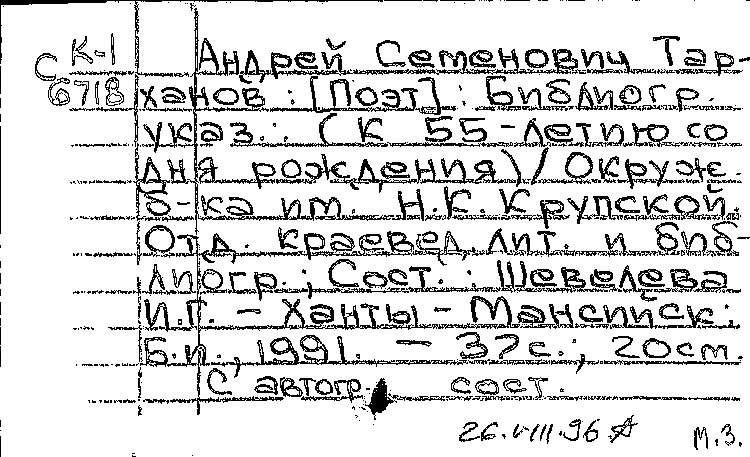 К-1
С
6718
Андрей Семенович Тар-
ханов : [Поэт] : Библиогр.
указ. : (К 55-летию со
дня рождения) / Окруж.
б-ка им. Н.К. Крупской.
Отд. краевед. лит. и биб-
лиогр. ; Сост. : Шевелева
И.Г. - Ханты - Мансийск :
Б.и., 1991. - 37с. ; 20см.
С автогр. сост.
26.VIII.96
М.З.